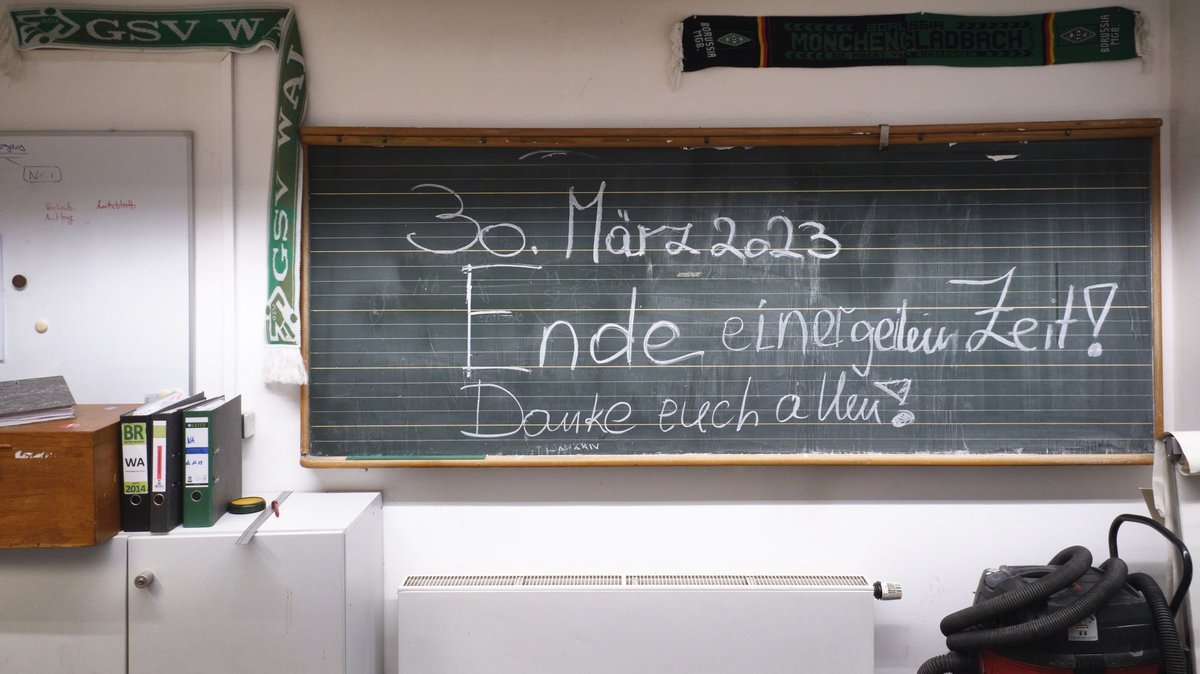 GSV W
GSV WAL
BORUSSIA
MGB.
BORUSSIA
MÖNCHENGLADBACH
BORUSSIA
MGB.
No 1
30. März 2023
Ende einer geilen Zeit!
Danke euch allen!
BR
WA
2014
WA